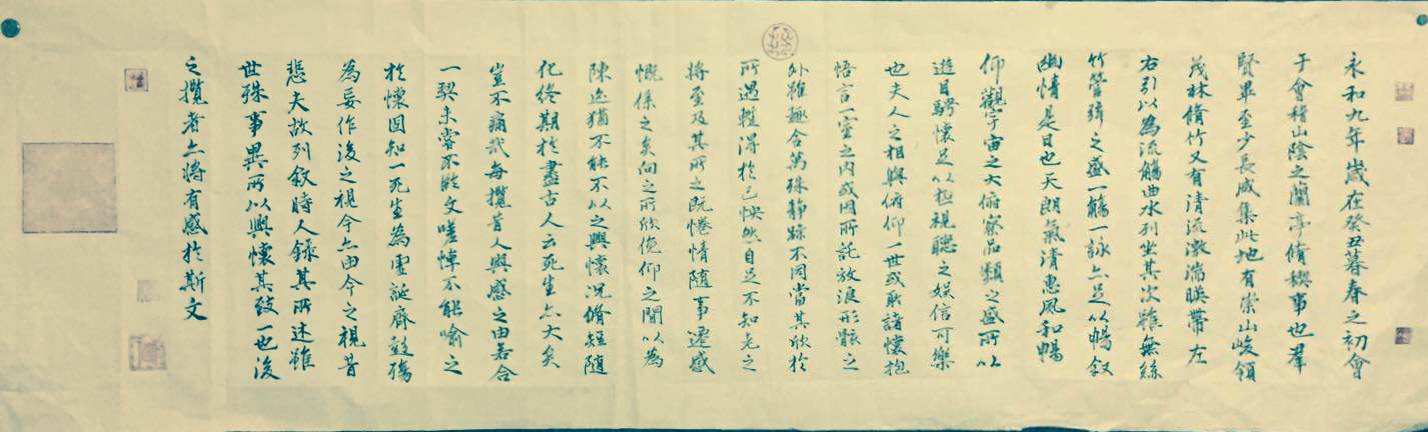 永和九年歲在癸丑暮春之初會
于會稽山陰之蘭亭脩稧事也羣
賢畢至少長咸集此地有崇山峻領
茂林脩竹又有清流激湍暎帶左
右引以為流觴曲水列坐其次雖無絲
竹管弦之盛一觴一詠亦足以暢叙
幽情是日也天朗氣清惠風和暢
仰觀宇宙之大俯察品類之盛所以
遊目騁懷足以極視聽之娛信可樂
也夫人之相與俯仰一世或取諸懷抱
悟言一室之內或因所託放浪形骸之
外雖趣舍萬殊靜躁不同當其欣於
所遇蹔得於己怏然自足不知老之
將至及其所之既惓情隨事遷感
慨係之矣向之所欣俛仰之間以為
陳迹猶不能不以之興懷況脩短隨
化終期於盡古人云死生亦大矣
豈不痛哉每攬昔人興感之由若合
一契未嘗不臨文嗟悼不能喻之
於懷固知一死生為虛誕齊彭殤
為妄作後之視今亦由今之視昔
悲夫故列叙時人錄其所述雖
世殊事異所以興懷其致一也後
之攬者亦將有感於斯文